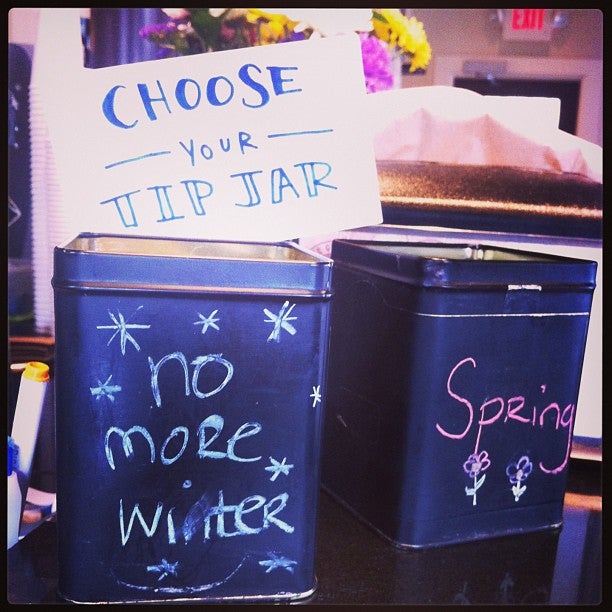 EXIT
CHOOSE
YOUR
TIP JAR
no
more
winter
Spring